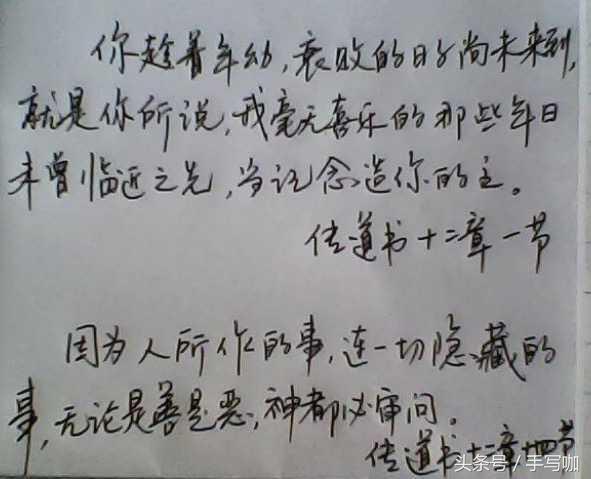 你趁着年幼,衰败的日子尚未来到,
就是你所说,我毫无喜乐的那些年日
未曾临近之先,当记念造你的主。
传道书十二章一节
因为人所作的事,连一切隐藏的
事,无论是善是恶,神都必审问。
传道书十二章十四节
头条号/手写咖